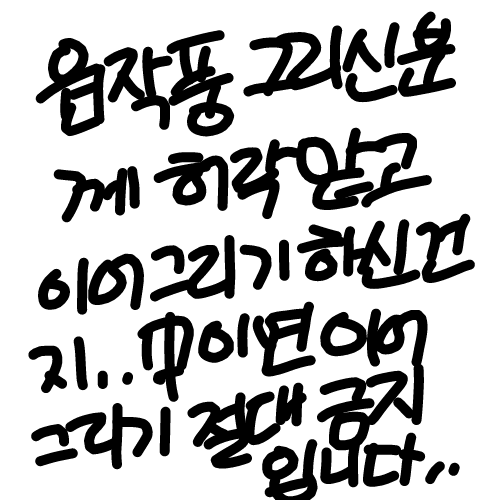 읍작풍 그리신분
께 허락 받고
이어그리기 하신건
지..中이면 이어
그리기 절대 금지
입니다..